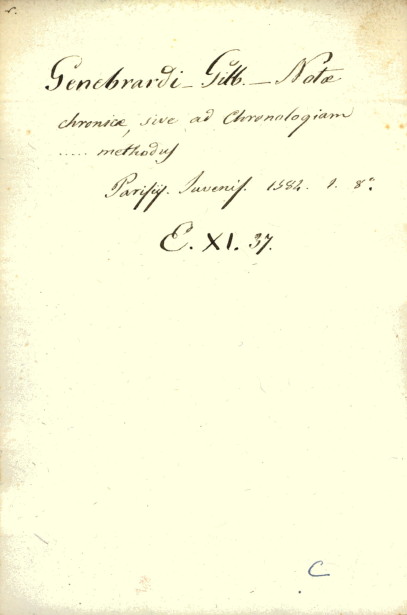 Genebrardi - Gilb. - Notæ
chronicæ, sive ad Chronologiam
..... methodus
Parisiis. Juvenis. 1584. 1. 8°.
E. XI. 37.
C